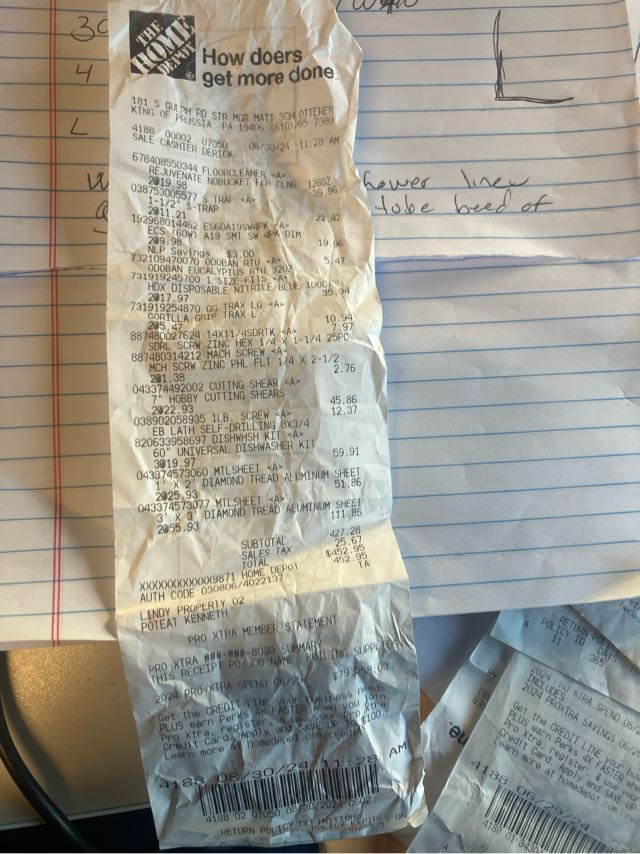 30
4
L
THE HOME DEPOT
How doers
get more done.
181 S GULPH RD STR MGR MATT SCHLOTTERER
KING OF PRUSSIA, PA 19406 (610)265-7380
4188 00002 07050 08/30/24 11:28 AM
SALE CASHIER DERICK
678408550344 FLOORCLEANER <A>
REJUVENATE NOBUCKET FLR CLNR 128OZ
2@19.98 39.96
038753005577 S TRAP <A>
1-1/2" S-TRAP
2@11.21 22.42
192968014462 ES60A19SW4PK <A>
ECS (60W) A19 SMT SW 4PK DIM
2@9.98 19.96
NLP Savings $3.00
732109470070 ODOBAN RTU <A> 5.47
ODOBAN EUCALYPTUS RTU 32OZ
731919245700 1 SIZE FITS <A>
HDX DISPOSABLE NITRILE BLUE 100CT
2@17.97 35.94
731919254870 GG TRAX LG <A>
GORILLA GRIP TRAX L
2@5.47 10.94
887480027624 14X11/4SDRTK <A> 7.97
SDRL SCRW ZINC HEX 1/4 X 1-1/4 25PC
887480314212 MACH SCREW <A>
MCH SCRW ZINC PHL FLT 1/4 X 2-1/2
2@1.38 2.76
043374492002 CUTTING SHEAR <A>
7" HOBBY CUTTING SHEARS
2@22.93 45.86
038902058935 1LB. SCREW <A> 12.37
EB LATH SELF-DRILLING 8X3/4
820633958697 DISHWHSH KIT <A>
60" UNIVERSAL DISHWASHER KIT
3@19.97 59.91
043374573060 MTLSHEET <A>
1' X 2' DIAMOND TREAD ALUMINUM SHEET
2@25.93 51.86
043374573077 MTLSHEET <A>
3' X 3' DIAMOND TREAD ALUMINUM SHEET
2@55.93 111.86
SUBTOTAL 427.28
SALES TAX 25.67
TOTAL $452.95
XXXXXXXXXXXX9871 HOME DEPOT 452.95
AUTH CODE 030806/4022137 TA
LINDY PROPERTY 02
POTEAT KENNETH
PRO XTRA MEMBER STATEMENT
PRO XTRA ###-###-8030 SUMMARY
THIS RECEIPT PO/JOB NAME: SUPPLIES
2024 PRO XTRA SPEND 08/29: $79,258.03
Get the CREDIT LINE your business needs
PLUS earn Perks 4X FASTER when you join
Pro Xtra, register, & use your Pro Xtra
Credit Card. Apply and SAVE UP TO $100.
Learn more at homedepot.com/credit
4188 08/30/24 11:28 AM
4188 02 07050 08/30/2024 0027
RETURN POLICY DEFINITIONS
POLICY EXPIRES ON
hower liner
tobe beed of
RETURN
POLICY ID DAYS
A 11 365
2024 PRO XTRA SPEND 06/
INCLUDES
2024 PROXTRA SAVINGS
Get the CREDIT LINE your
PLUS earn Perks 4X FASTER
Pro Xtra, register, & use
Credit Card. Apply and SAVE
Learn more at homedepot.com
4188 06/29/24